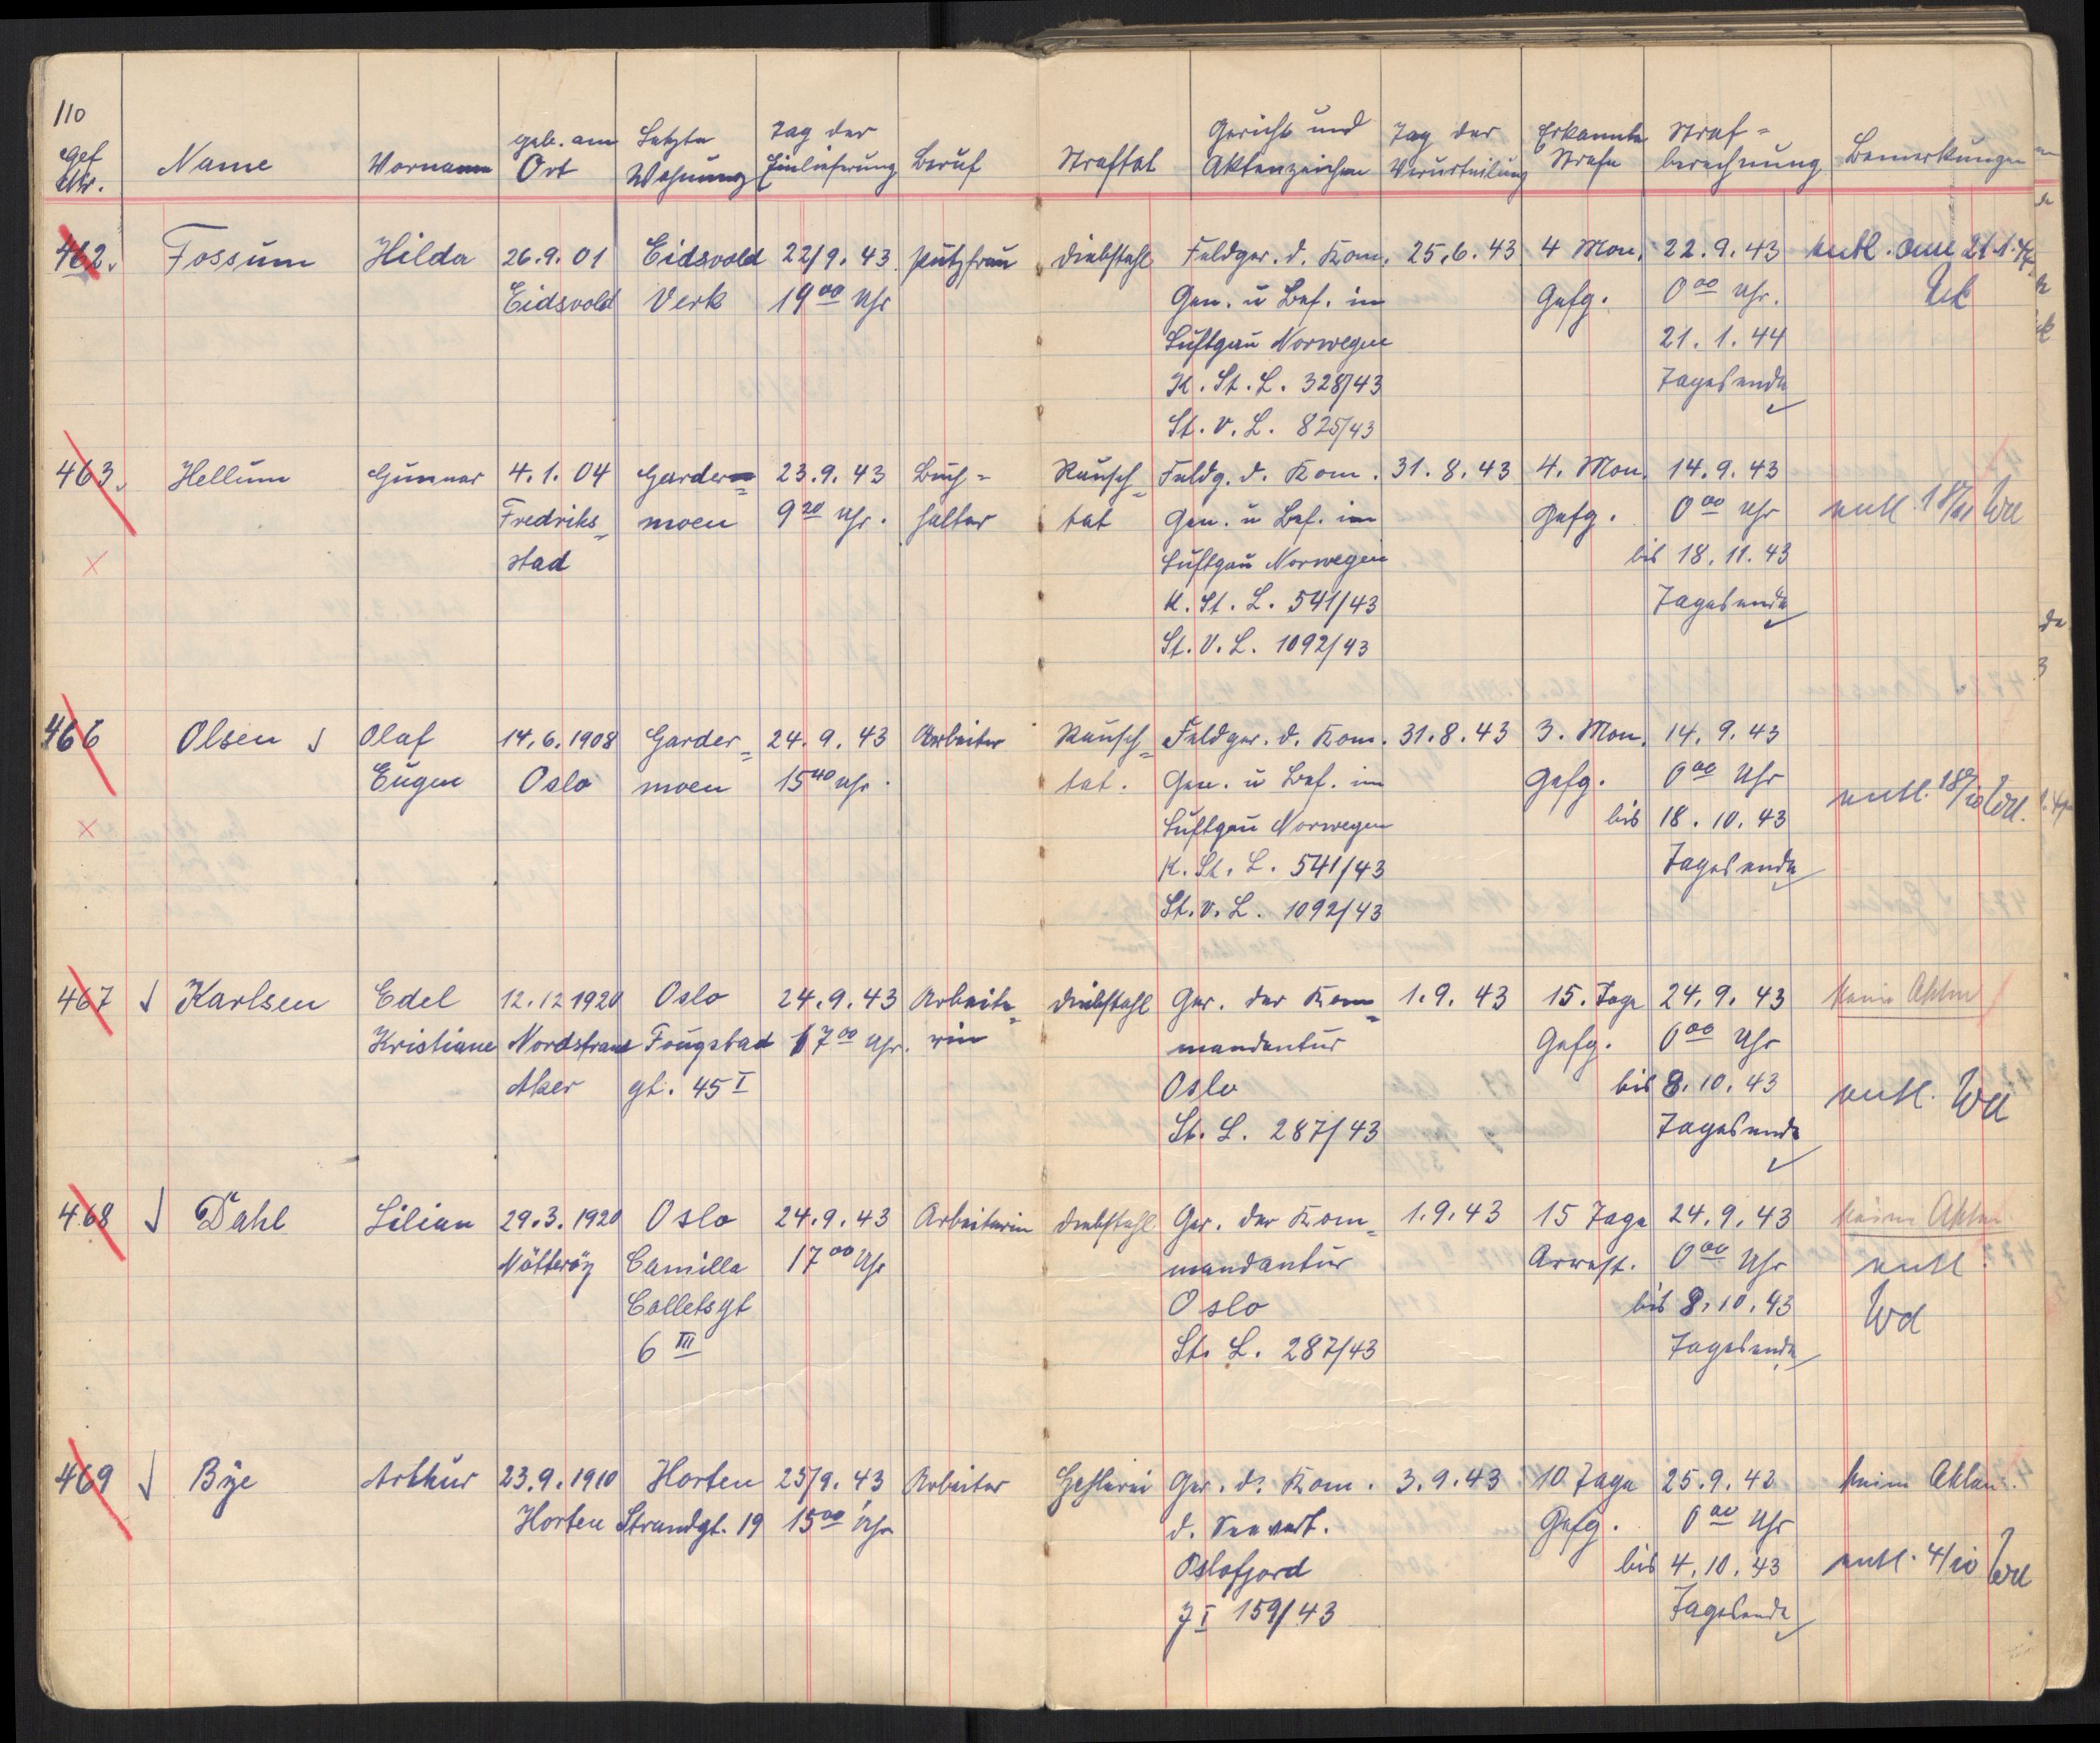 110
Gef. Nr. Name Vorname geb. am Ort Letzte Wohnung Tag der Einlieferung Beruf Straftat Gericht und Aktenzeichen Tag der Verurteilung Erkannte Strafe Straf- berechnung Bemerkungen
462. Fossum Hilda 26.9.01 Eidsvold 22/9.43 Putzfrau Diebstahl Feldger. d. Kom. 25.6.43 4 Mon. 22.9.43 entl. am 21.1.
Eidsvold Verk 19 00 Uhr Gen. u Bef. im Gefg. 0 00 Uhr.
Luftgau Norwegen 21.1.44
K. St. L. 328/43 Tagesende
St. V. L. 825/43
463. Hellum Gunnar 4.1.04 Garder= 23.9.43 Buch= Rausch= Feldg. d. Kom. 31.8.43 4. Mon. 14.9.43
Fredriks= moen 9 20 Uhr. halter tat Gen. u Bef. im Gefg. 0 00 Uhr entl. 18/11 Wd
stad Luftgau Norwegen bis 18.11.43
K. St. L. 541/43 Tagesende
St. V. L. 1092/43
466 Olsen Olaf 14.6.1908 Garder= 24.9.43 Arbeiter Rausch= Feldger. d. Kom. 31.8.43 3. Mon. 14.9.43
Eugen Oslo moen 15 40 Uhr. tat. Gen. u Bef. im Gefg. 0 00 Uhr entl. 18/10 Wd.
Luftgau Norwegen bis 18.10.43
K. St. L. 541/43 Tagesende
St. V. L. 1092/43
467 Karlsen Edel 12.12 1920 Oslo 24.9.43 Arbeite= Diebstahl Ger. der Kom= 1.9.43 15. Tage 24.9.43 keine Akten
Kristiane Nordstrand Fougstad 17 00 Uhr. rin mandantur Gefg. 0 00 Uhr
Aker gt. 45 I Oslo bis 8.10.43 entl. Wd
St. L. 287/43 Tagesende
468 Dahl Lilian 29.3.1920 Oslo 24.9.43 Arbeiterin Diebstahl Ger. der Kom= 1.9.43 15 Tage 24.9.43 keine Akten.
Nötteröy Camilla 17 00 Uhr mandantur Arrest. 0 00 Uhr entl.
Colletsgt Oslo bis 8.10.43 Wd
6 III St. L. 287/43 Tagesende
469 Bye Arthur 23.9.1910 Horten 25/9.43 Arbeiter Hehlerei Ger. d. Kom. 3.9.43 10 Tage 25.9.43 keine Akten.
Horten Strandgt. 19 15 00 Uhr d. Seevert. Gefg. 0 00 Uhr
Oslofjord bis 4.10.43 entl. 4/10 Wd
J I 159/43 Tagesende